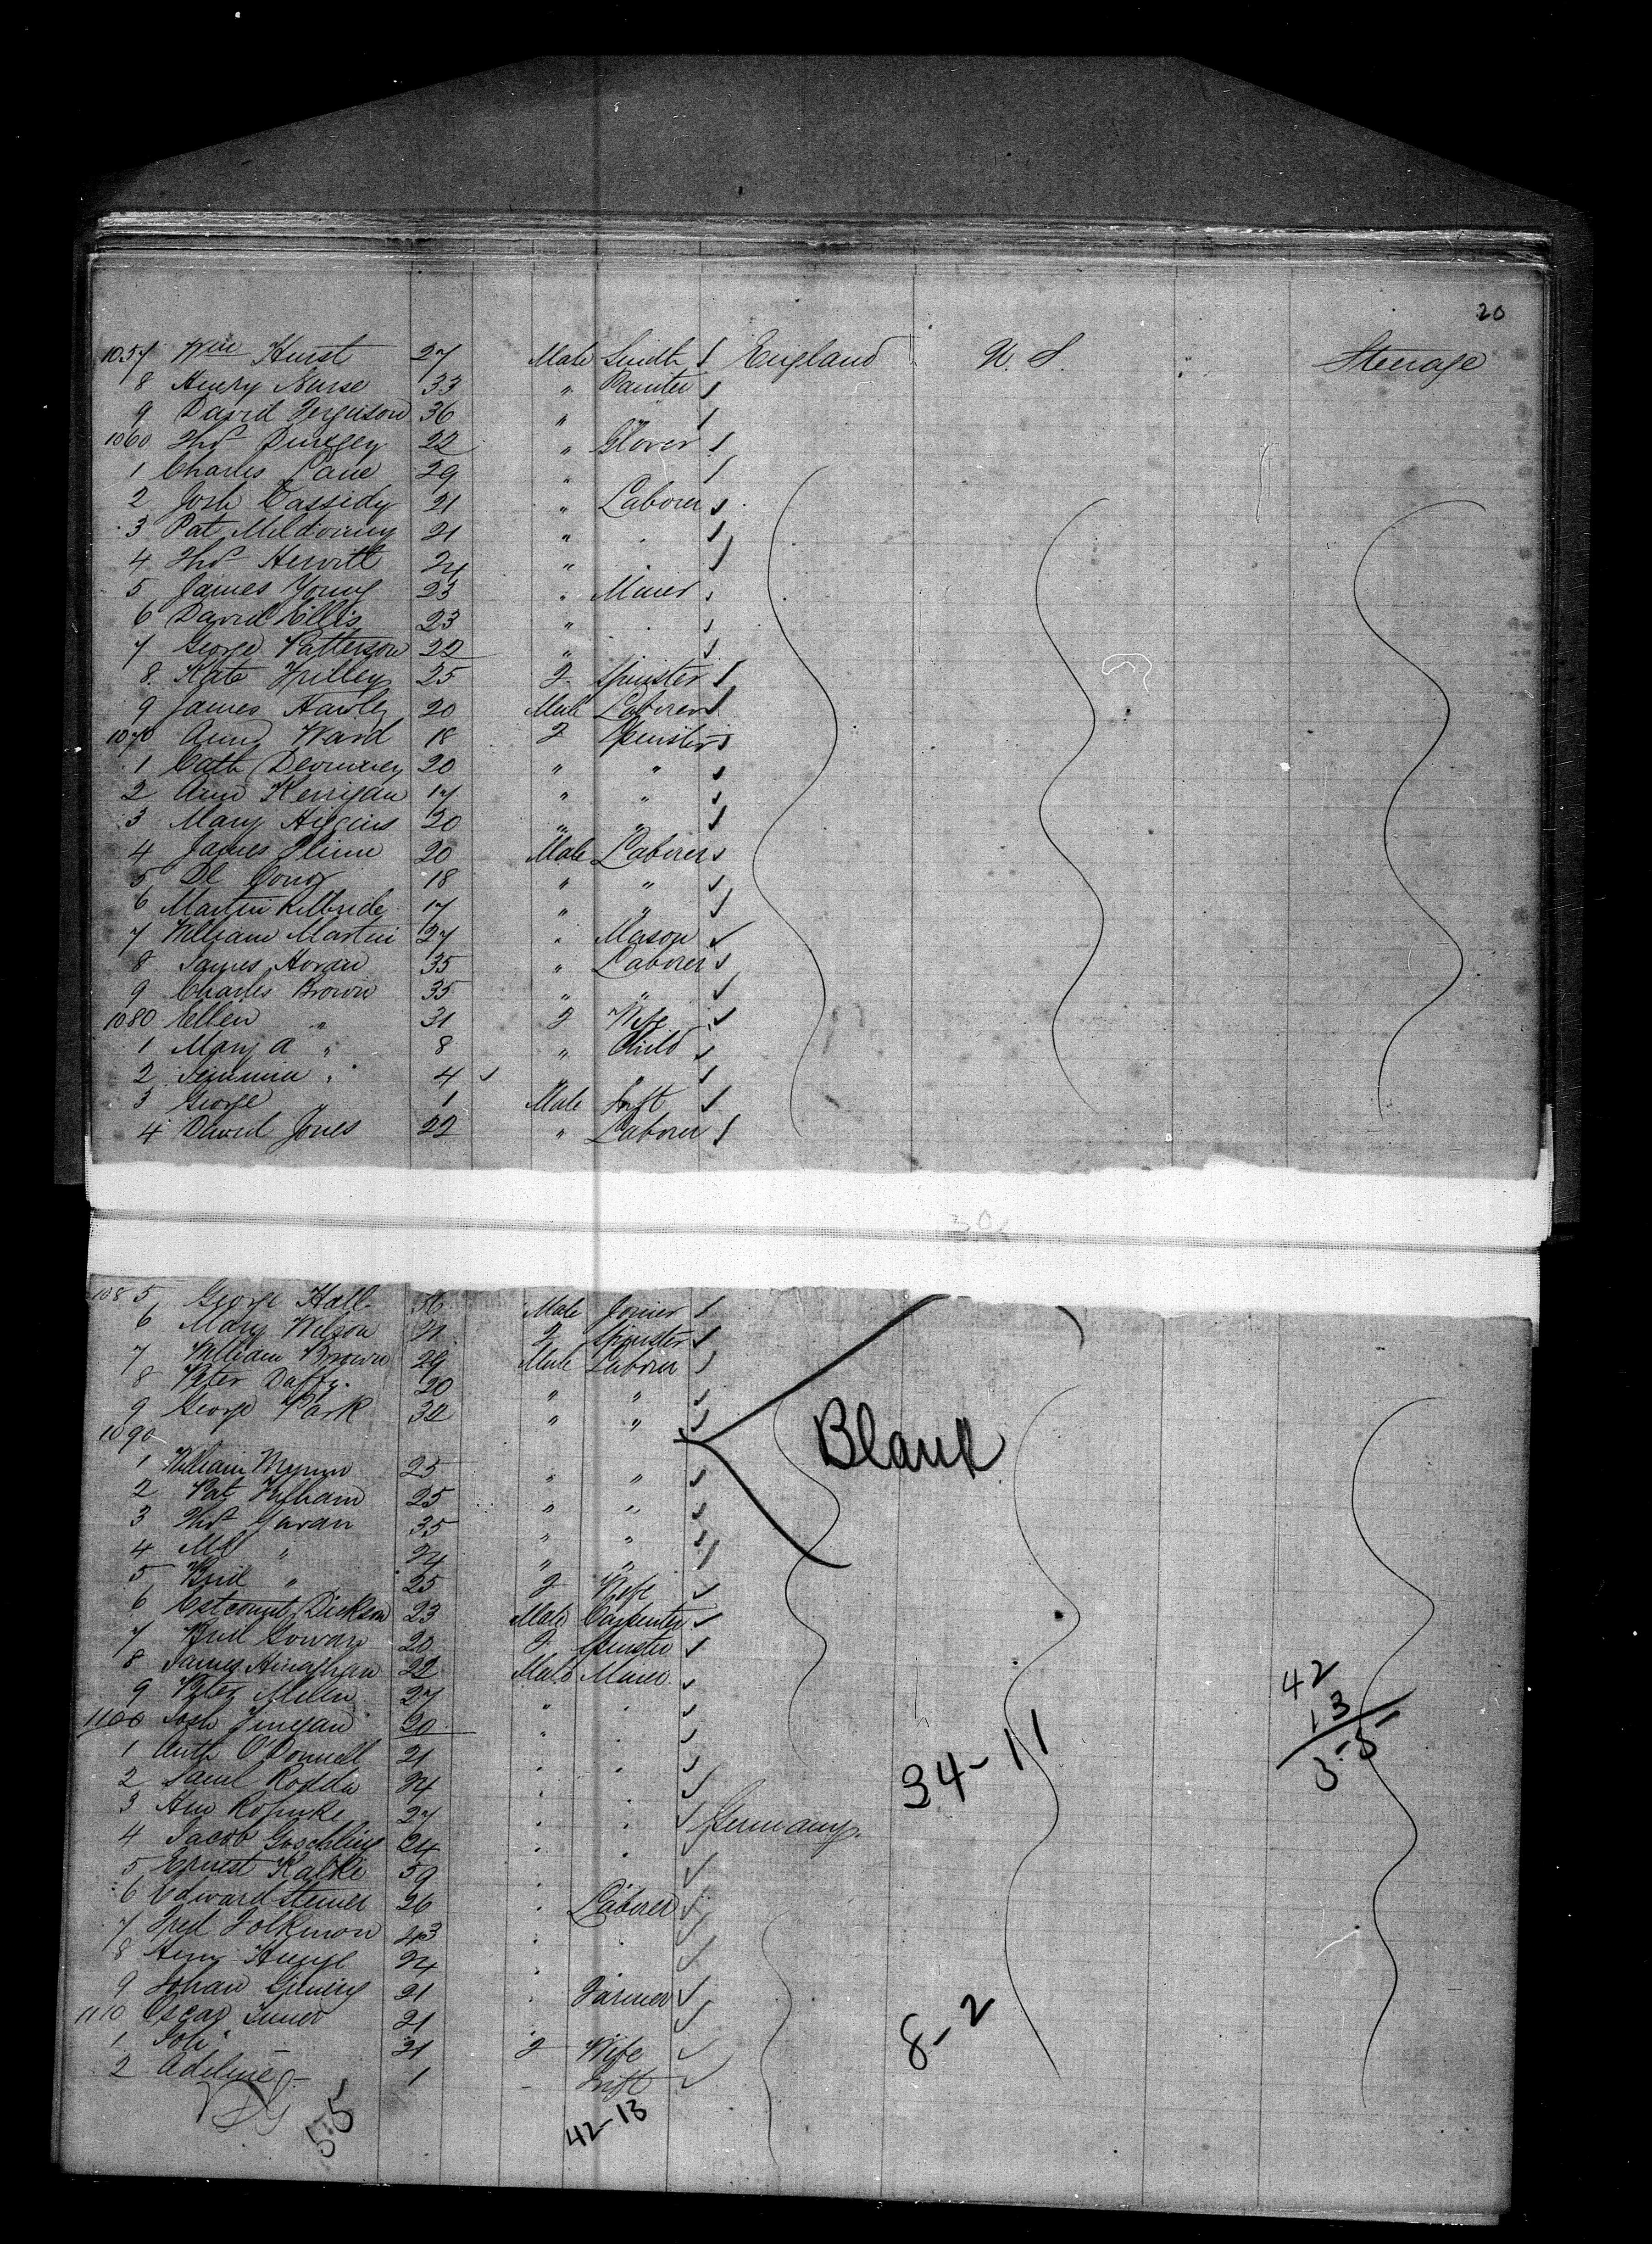 20
1057 Wm Hurst 27 Male Smith England U. S. Steerage
8 Henry Nurse 33 " Painter
9 David Ferguson 36 " "
1060 Thos 22 " Glover
1 Charles Lane 29 " "
2 Josh Cassidy 21 " Laborer
3 Pat 21 " "
4 Thos Hewitt 24 " "
5 James Young 23 " Miner
6 David Ellis 23 " "
7 George Patterson 22 " "
8 Kate 25 F Spinster
9 James Hawley 20 Male Laborer
1070 Ann Ward 18 F Spinster
1 Cath 20 " "
2 Ann Kerrigan 17 " "
3 Mary Higgins 20 " "
4 James Glinn 20 Male Laborer
5 18 " "
6 Martin Kilbride 17 " "
7 William Martin 27 " Mason
8 James Horan 35 " Laborer
9 Charles Brown 35 " "
1080 Ellen " 31 F Wife
1 Mary A " 8 " Child
2 Jemima " 4 " "
3 George " 1 Male Inft
4 David Jones 22 " Laborer
1085 George Hall 36 Male Joiner
6 Mary Wilson 21 F Spinster
7 William Brown 29 Male Laborer
8 Peter Duffy 20 " "
9 George Park 32 " "
1090 Blank
1 William 25 " "
2 Pat 25 " "
3 Thos Gavan 35 " "
4 Ml " 24 " "
5 Brid " 25 F Wife
6 Dickson 23 Male Carpenter
7 Brid Gowan 20 F Spinster
8 James 22 Male Miner
9 Peter 27 " "
1100 Josh Finegan 20 " "
1 Anth O'Donnell 21 " "
2 Saml Rodda 24 " "
3 27 " " Germany
4 Jacob Goschling 24 " "
5 Ernest Kalke 59 " "
6 Edward Steiner 26 " Laborer
7 Fred Folkmon 43 " "
8 Henry 24 " "
9 Johan 21 " Farmer
1110 Oscar 21 " "
1 21 F Wife
2 Adeline 1 - Inft
34-11
42
13
55
8-2
55
42-13